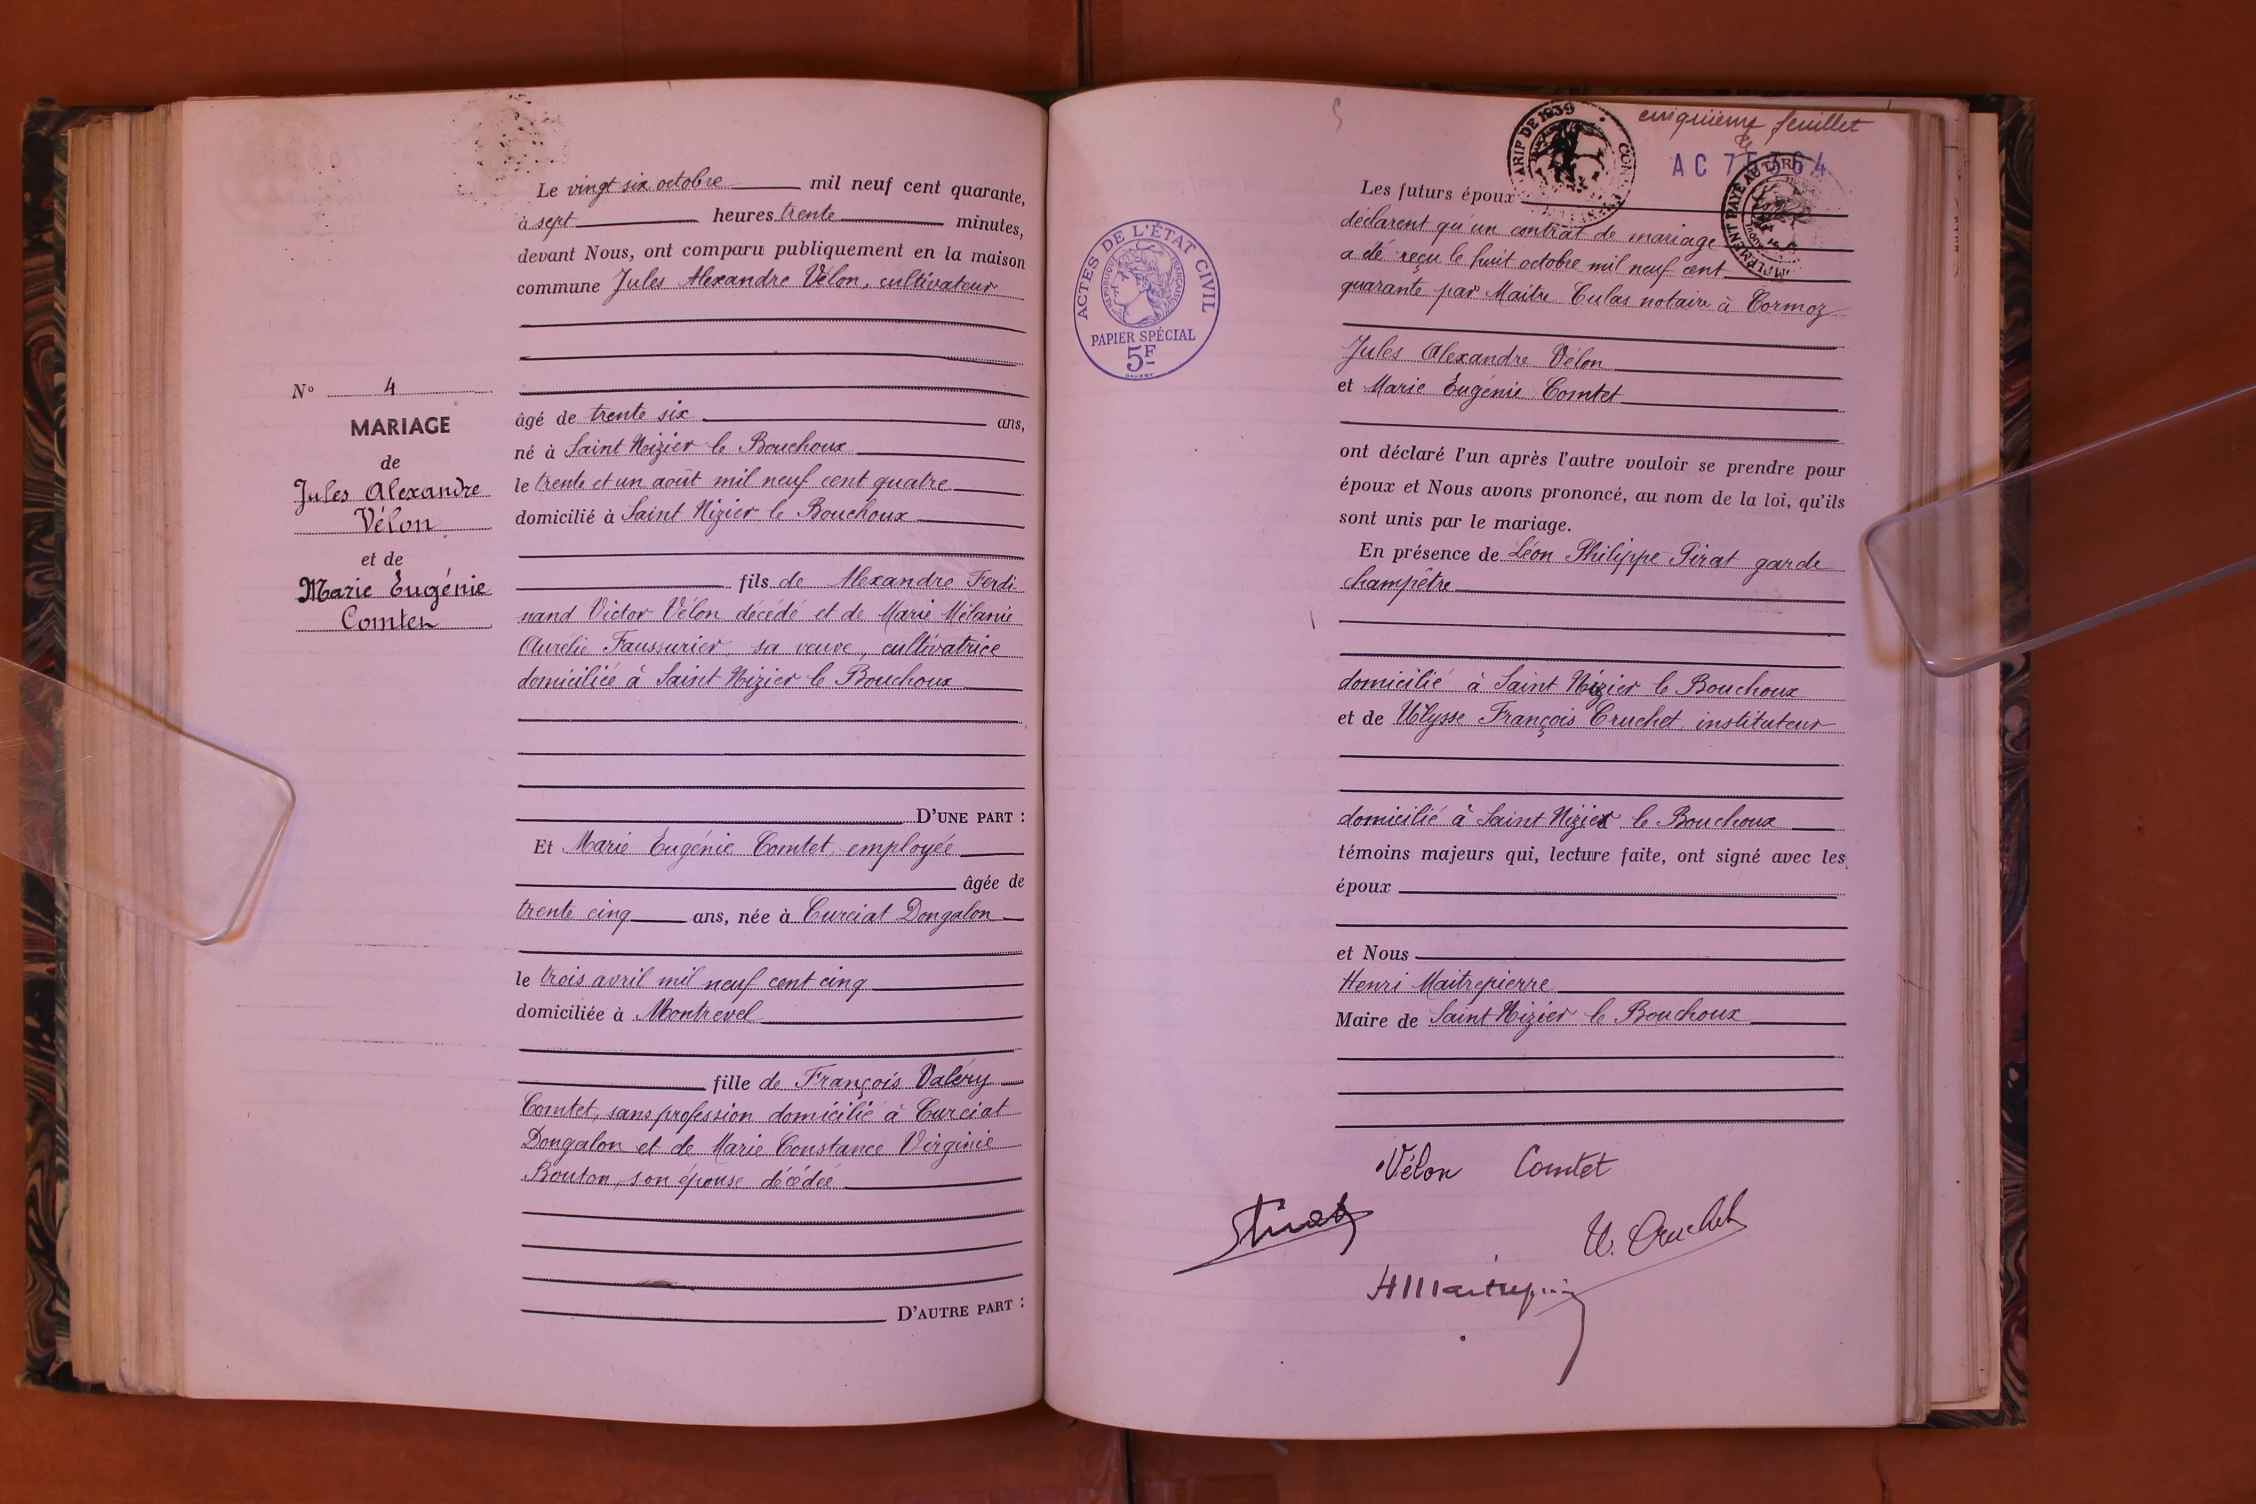 Le vingt six octobre mil neuf cent quarante,
à sept heures trente minutes,
devant Nous, ont comparu publiquement en la maison
commune Jules Alexandre Vélon, cultivateur
N° 4
MARIAGE
de
Jules Alexandre
Vélon
et de
Marie Eugénie
Comtet
âgé de trente six ans,
né à Saint Nizier le Bouchoux
le trente et un août mil neuf cent quatre
domicilié à Saint Nizier le Bouchoux
fils de Alexandre Ferdi
nand Victor Vélon décédé et de Marie Mélanie
Aurélie Faussurier, sa veuve, cultivatrice
domiciliée à Saint Nizier le Bouchoux
D'UNE PART :
Et Marie Eugénie Comtet, employée
âgée de
trente cinq ans, née à Curciat Dongalon
le trois avril mil neuf cent cinq
domiciliée à Montrevel
fille de François Valéry
Comtet, sans profession domicilié à Curciat
Dongalon et de Marie Constance Virginie
Bouton, son épouse décédée
D'AUTRE PART :
cinquième feuillet
TARIF DE 1939
AC 75
64
ACTES DE L'ÉTAT CIVIL
RÉPUBLIQUE FRANÇAISE
PAPIER SPÉCIAL
5F
Les futurs époux
déclarent qu'un contrat de mariage
a été reçu le huit octobre mil neuf cent
quarante par Maitre Culas notaire à Cormoz
Jules Alexandre Vélon
et Marie Eugénie Comtet
ont déclaré l'un après l'autre vouloir se prendre pour
époux et Nous avons prononcé, au nom de la loi, qu'ils
sont unis par le mariage.
En présence de Léon Philippe Pirat garde
champêtre
domicilié à Saint Nizier le Bouchoux
et de Ulysse François Cruchet instituteur
domicilié à Saint Nizier le Bouchoux
témoins majeurs qui, lecture faite, ont signé avec les
époux
et Nous
Henri Maitrepierre
Maire de Saint Nizier le Bouchoux
Vélon Comtet
U. Cruchet